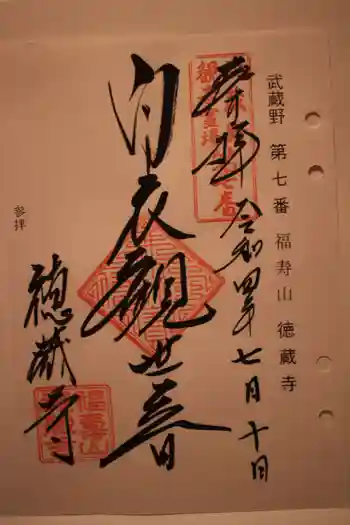 武蔵野 第七番 福寿山 徳蔵寺
奉拝 令和四年七月十日
白衣觀世音
徳蔵寺
参拝